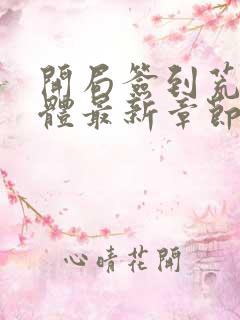 開局簽到荒
體最新章節
心晴花開